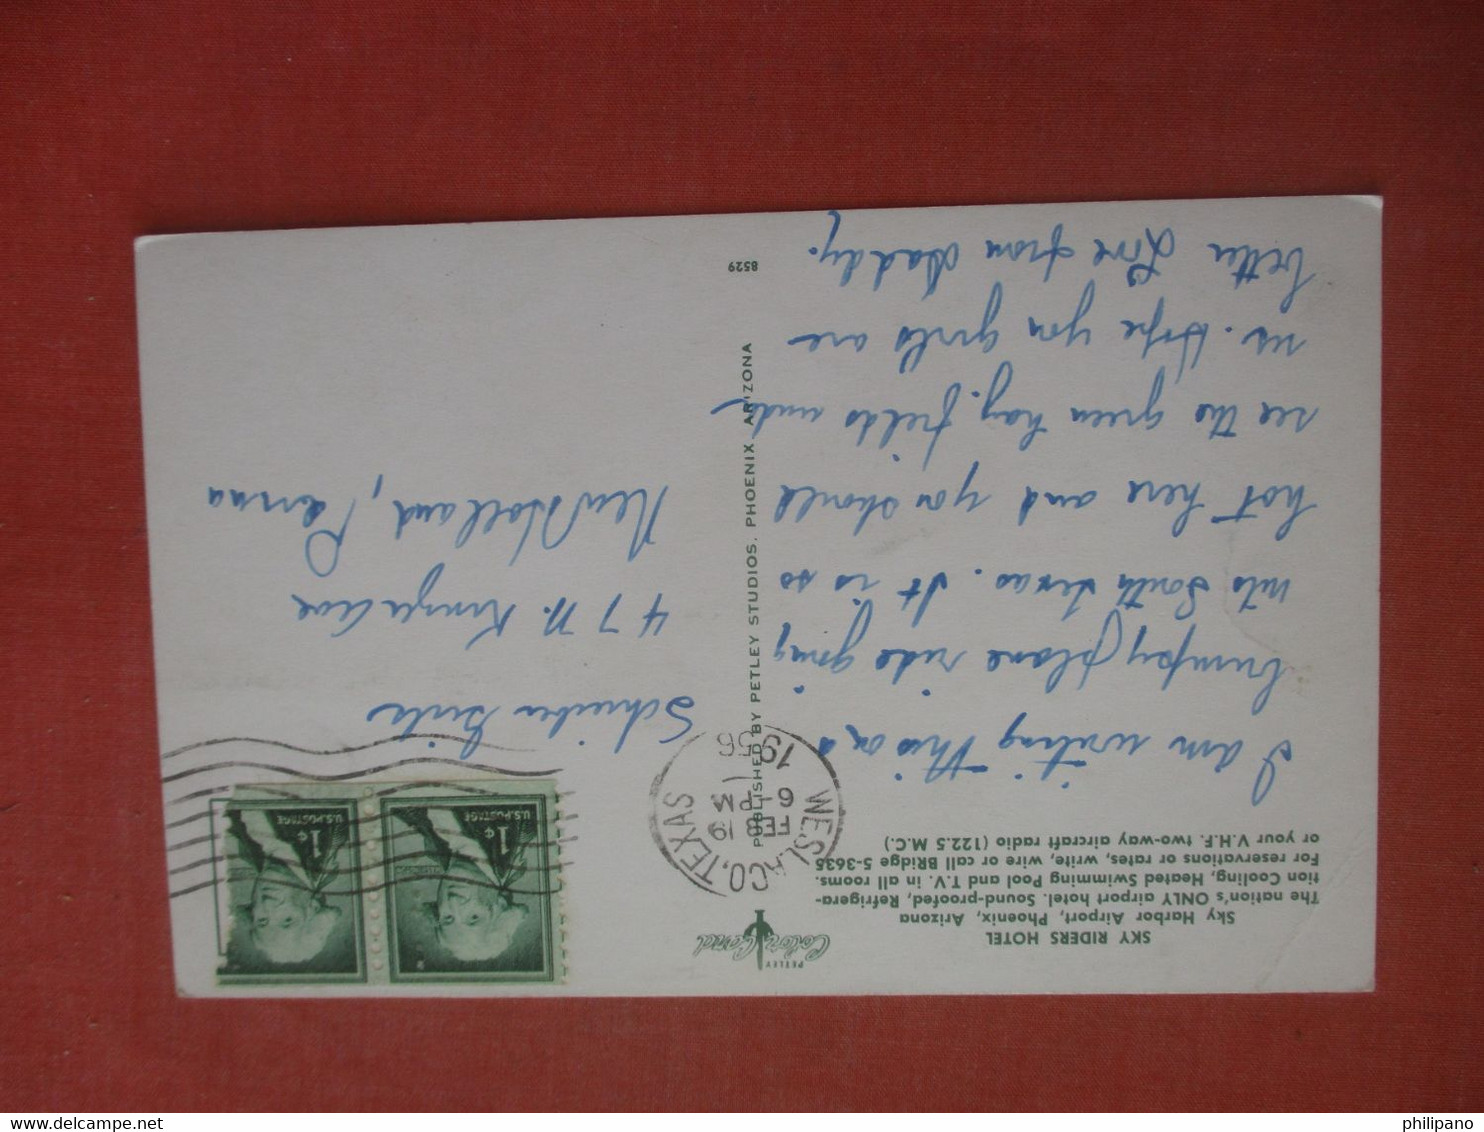 SKY RIDERS HOTEL
Sky Harbor Airport, Phoenix, Arizona
The nation's ONLY airport hotel. Sound-proofed, Refrigera-
tion Cooling, Heated Swimming Pool and T.V. in all rooms.
For reservations or rates, write, wire or call BRidge 5-3635
or your V.H.F. two-way aircraft radio (122.5 M.C.)
I am writing this on a
bumpy plane ride going
into South Texas. It is so
hot here and you should
see the green hay fields under
us. Hope you girls are
better Love from Daddy.
PETLEY
Color Card
PUBLISHED BY PETLEY STUDIOS, PHOENIX ARIZONA
8529
WESLACO, TEXAS
FEB 19
6-PM
1956
1¢
U.S. POSTAGE
1¢
U.S. POSTAGE
Schreiber Girls
47 N. Ave
New Holland, Penna
philipano